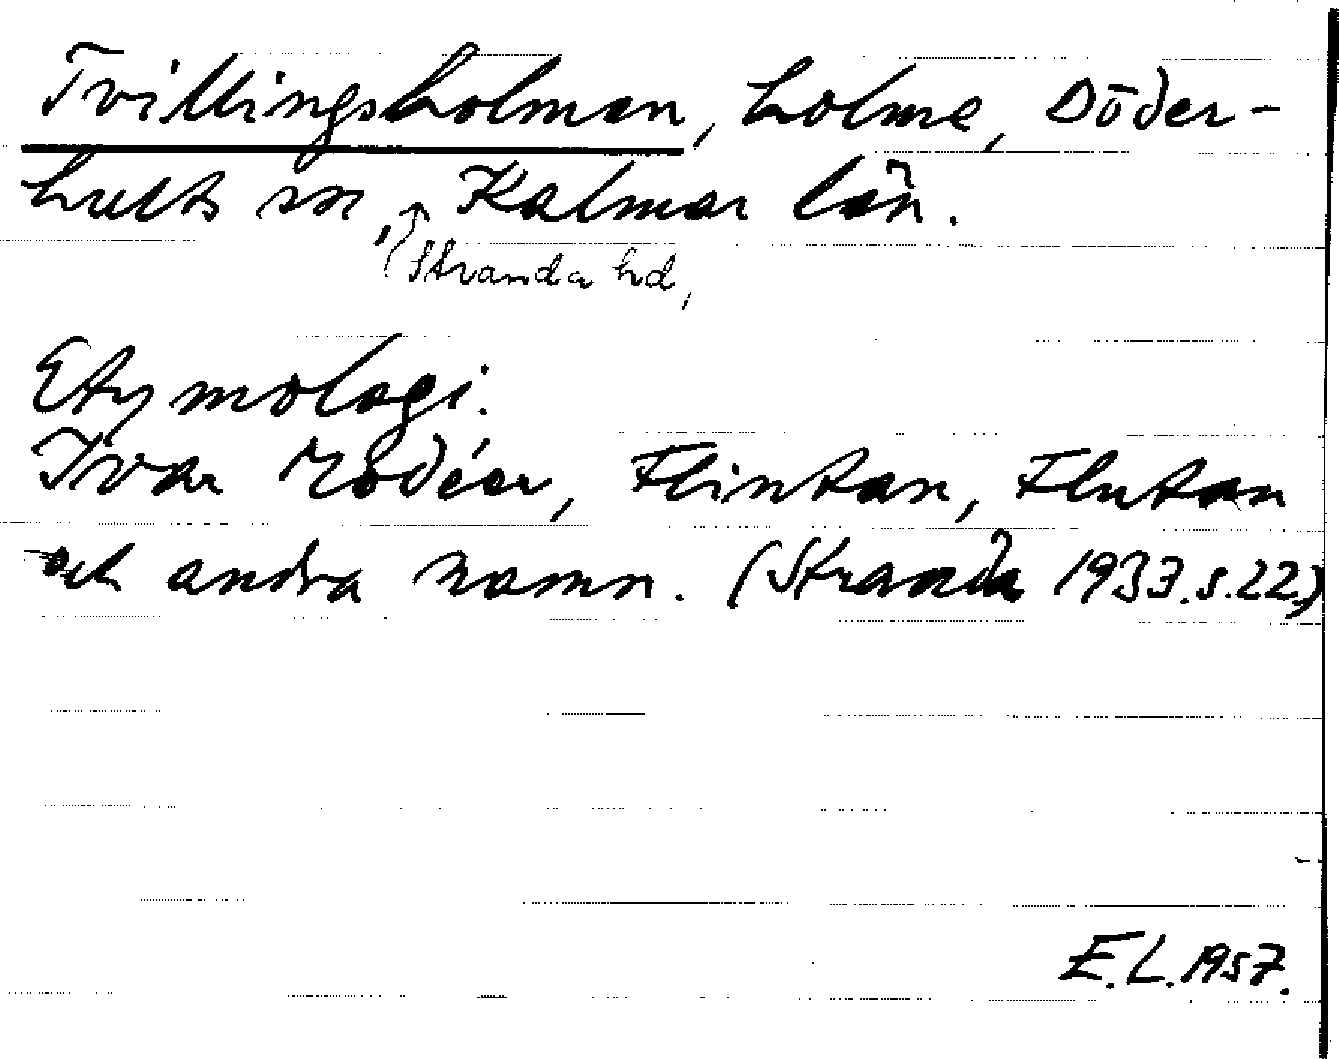 Tvillingsholmen, holme, Döder-
hults sn, Kalmar län.
Stranda hd,
Etymologi.
Ivar Modéer, Flintan, Flutan
och andra namn. (Stranda 1933.s.22.)
E.L.1957.